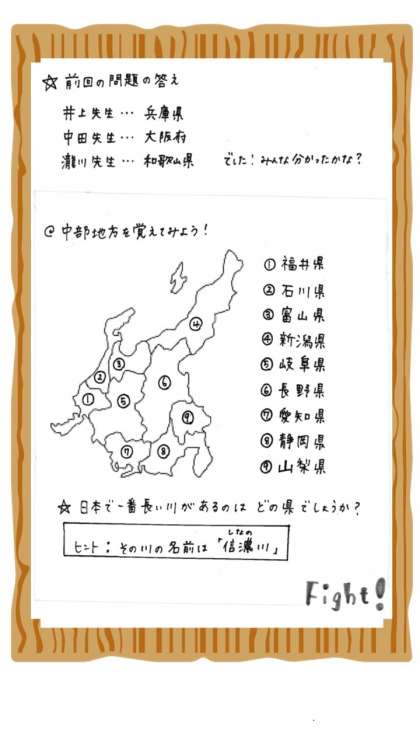 ☆ 前回の問題の答え
井上先生… 兵庫県
中田先生… 大阪府
瀧川先生… 和歌山県 でした！みんな分かったかな？
◎ 中部地方を覚えてみよう！
① 福井県
② 石川県
③ 富山県
④ 新潟県
⑤ 岐阜県
⑥ 長野県
⑦ 愛知県
⑧ 静岡県
⑨ 山梨県
④
③
②
⑥
①
⑤
⑨
⑦
⑧
☆ 日本で一番長い川があるのは どの県でしょうか？
しなの
ヒント：その川の名前は「信濃川」
Fight!